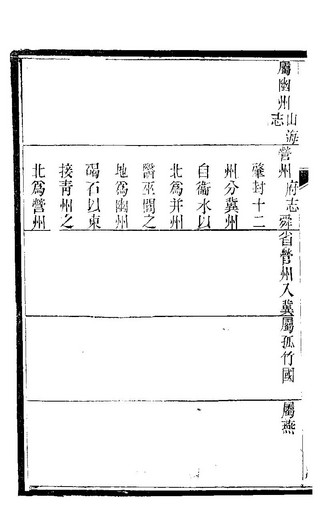 屬幽州山海志
營州府志舜肇封十二
州分冀州
自衞水以
北爲并州
醫巫閭之
地爲幽州
碣石以東
接青州之
北爲營州
省營州入冀
屬孤竹國
屬燕